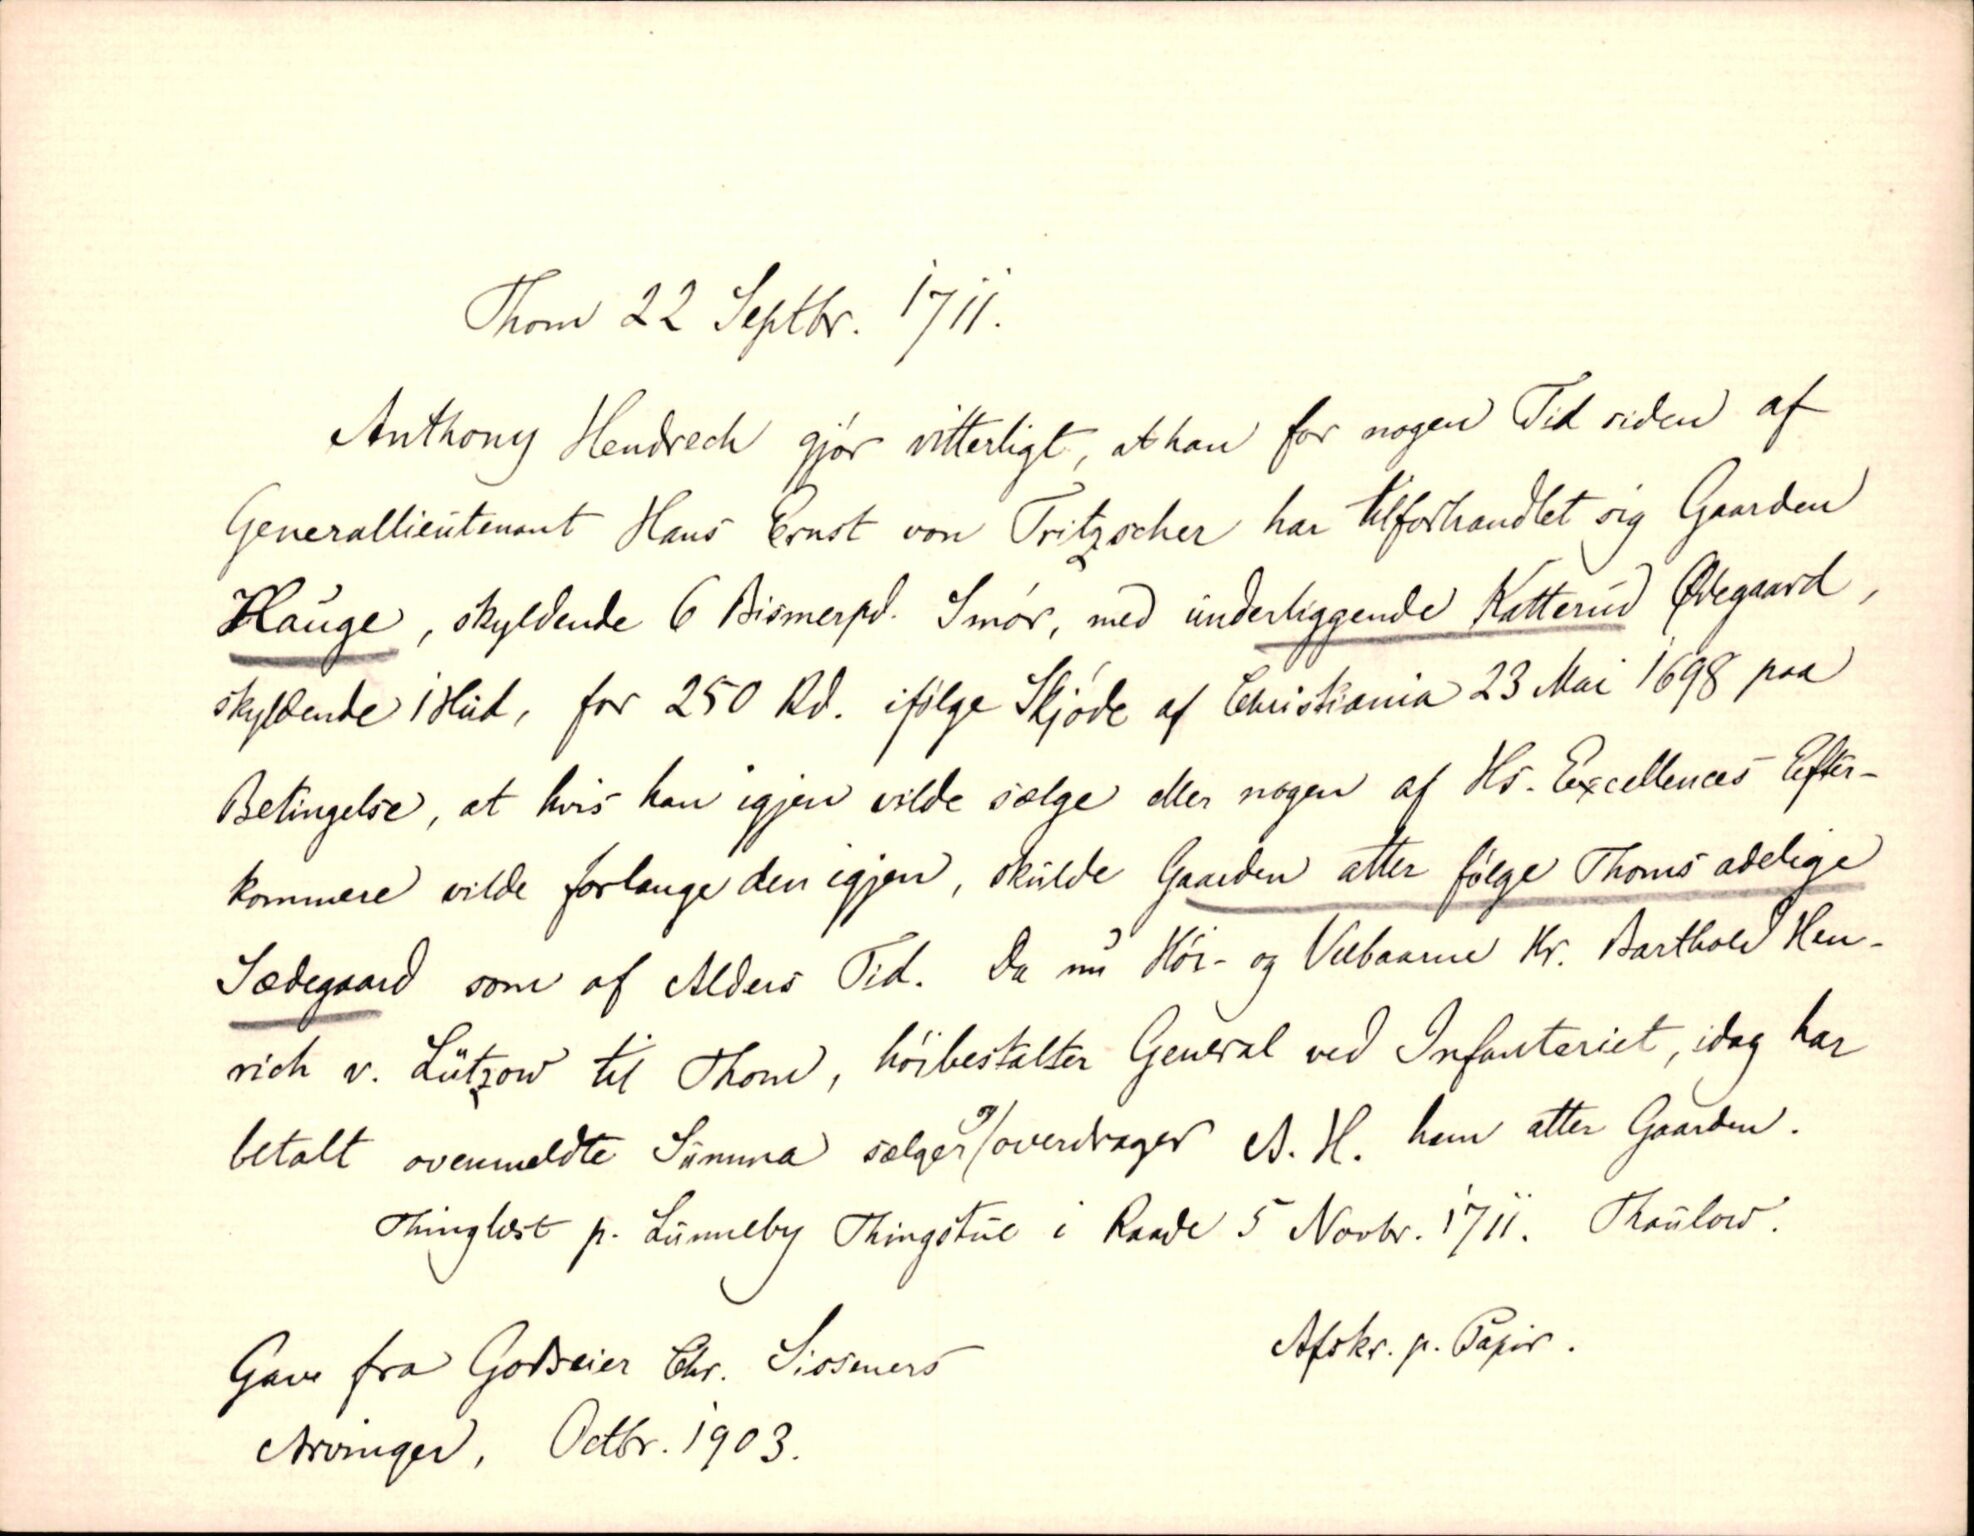 Thom 22 Septbr. 1711.
Anthony Hendrech gjör vitterligt, at han for nogen Tid siden af
Generallieutenant Hans Ernst von Tritzscher har tilforhandlet sig Gaarden
Hauge, skyldende 6 Bismerpd. Smör, med underliggende Katterud Ødegaard,
skyldende 1 Hud, for 250 Rd. ifölge Skjöde af Christiania 23 Mai 1698 paa
Betingelse, at hvis han igjen vilde sælge eller nogen af Hs. Excellences Efter-
kommere vilde forlange den igjen, skulde Gaarden atter fölge Thoms adelige
Sædegaard som af Alders Tid. Da nu Höi- og Velbaarne Hr. Barthold Hen-
rich v. Lützow til Thom, höibestalter General ved Infanteriet, idag har
betalt ovenmeldte Summa sælger og overdrager A. H. ham atter Gaarden.
Thinglæst p. Lunneby Thingstue i Raade 5 Novbr. 1711. Thaulow.
Afskr. p. Papir.
Gave fra Godseier Chr. Sisseners
Arvinger, Octbr. 1903.